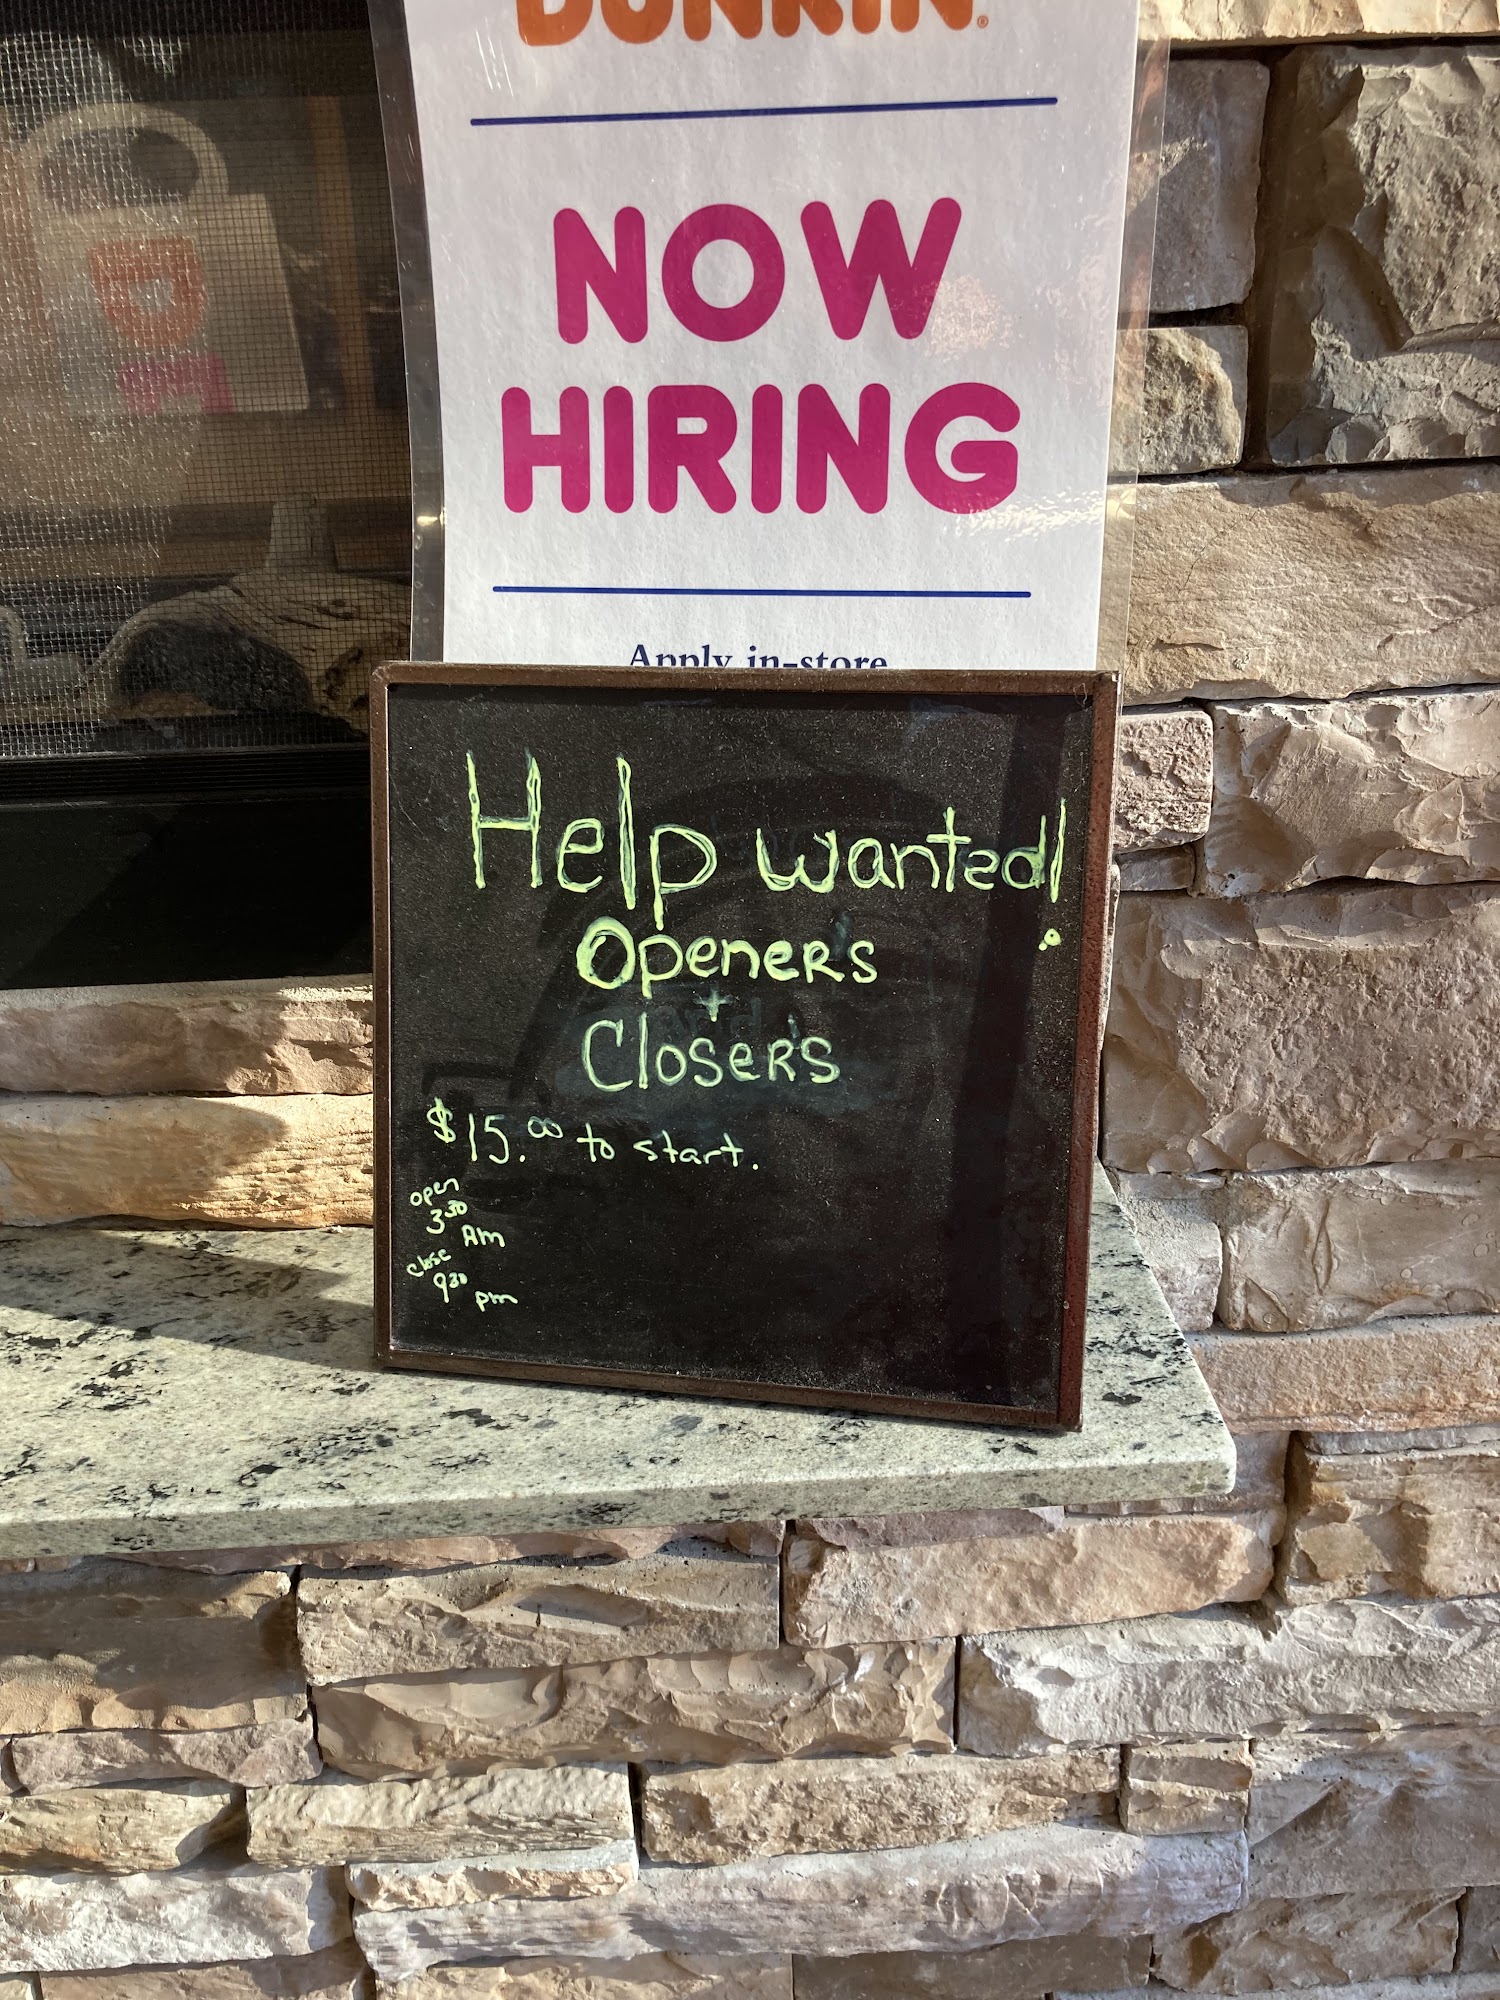 DUNKIN'®
NOW
HIRING
Apply in-store
Help wanted!
Opener's
+
Closer's
$15.00 to start.
open
3 30
Am
close
9 30
pm